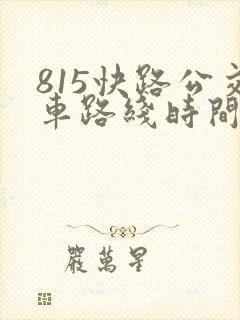 815快路公交
車路綫時間
嚴萬星